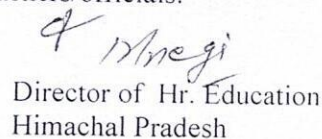 officials.
Director of Hr. Education
Himachal Pradesh